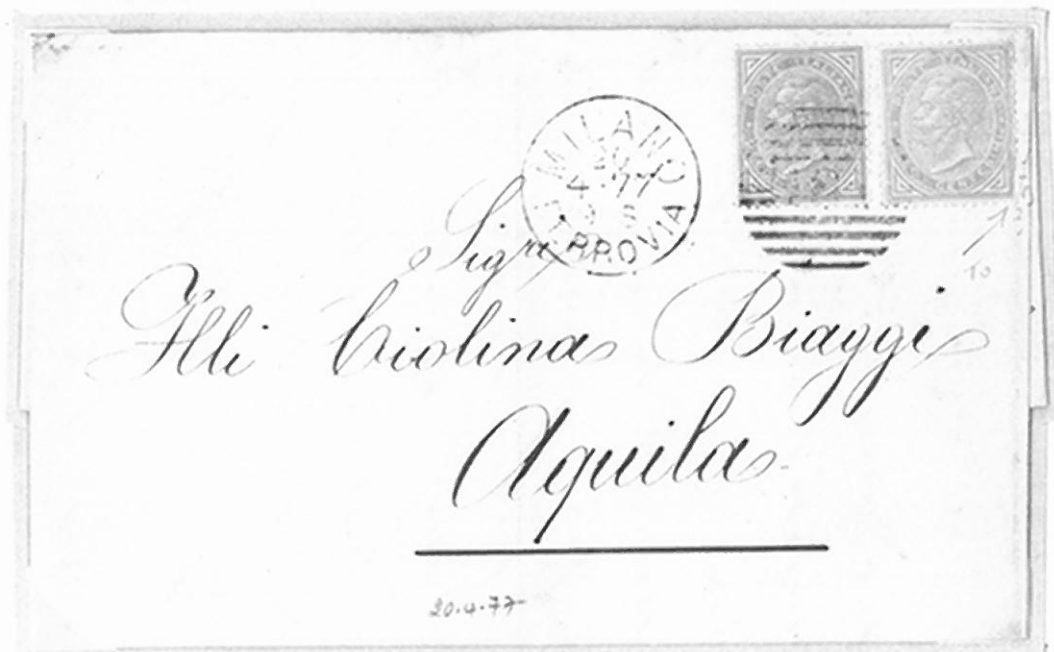 MILANO
20
4-77
FERROVIA
10
Sigri
Flli Ciolina Biaggi
Aquila
20.4.77